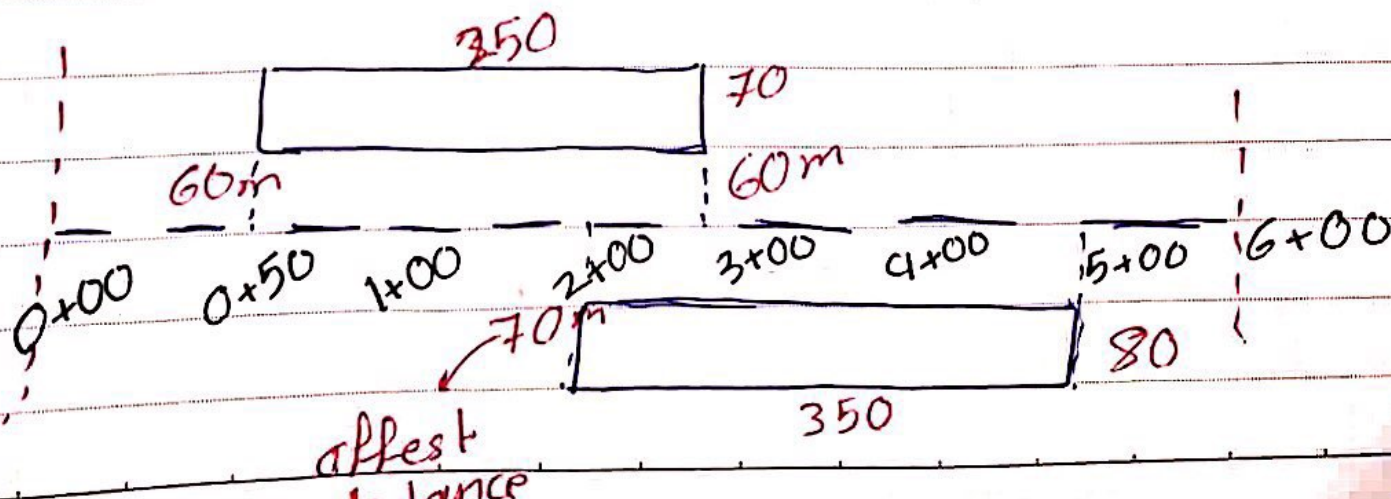 350
70
60m
60m
0+00
0+50
1+00
2+00
3+00
4+00
5+00
6+00
70m
80
350
offest